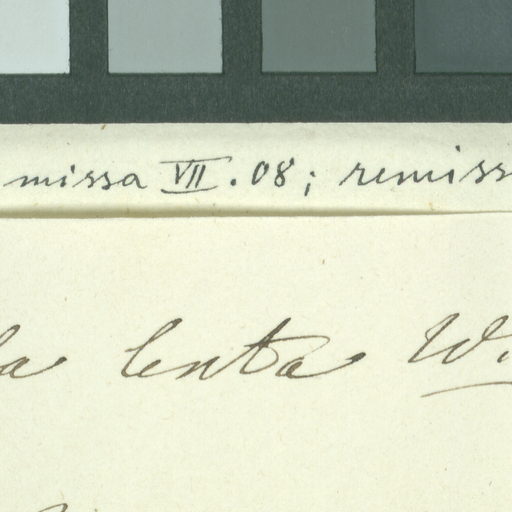 missa VII.08; remiss
la lenta Wi